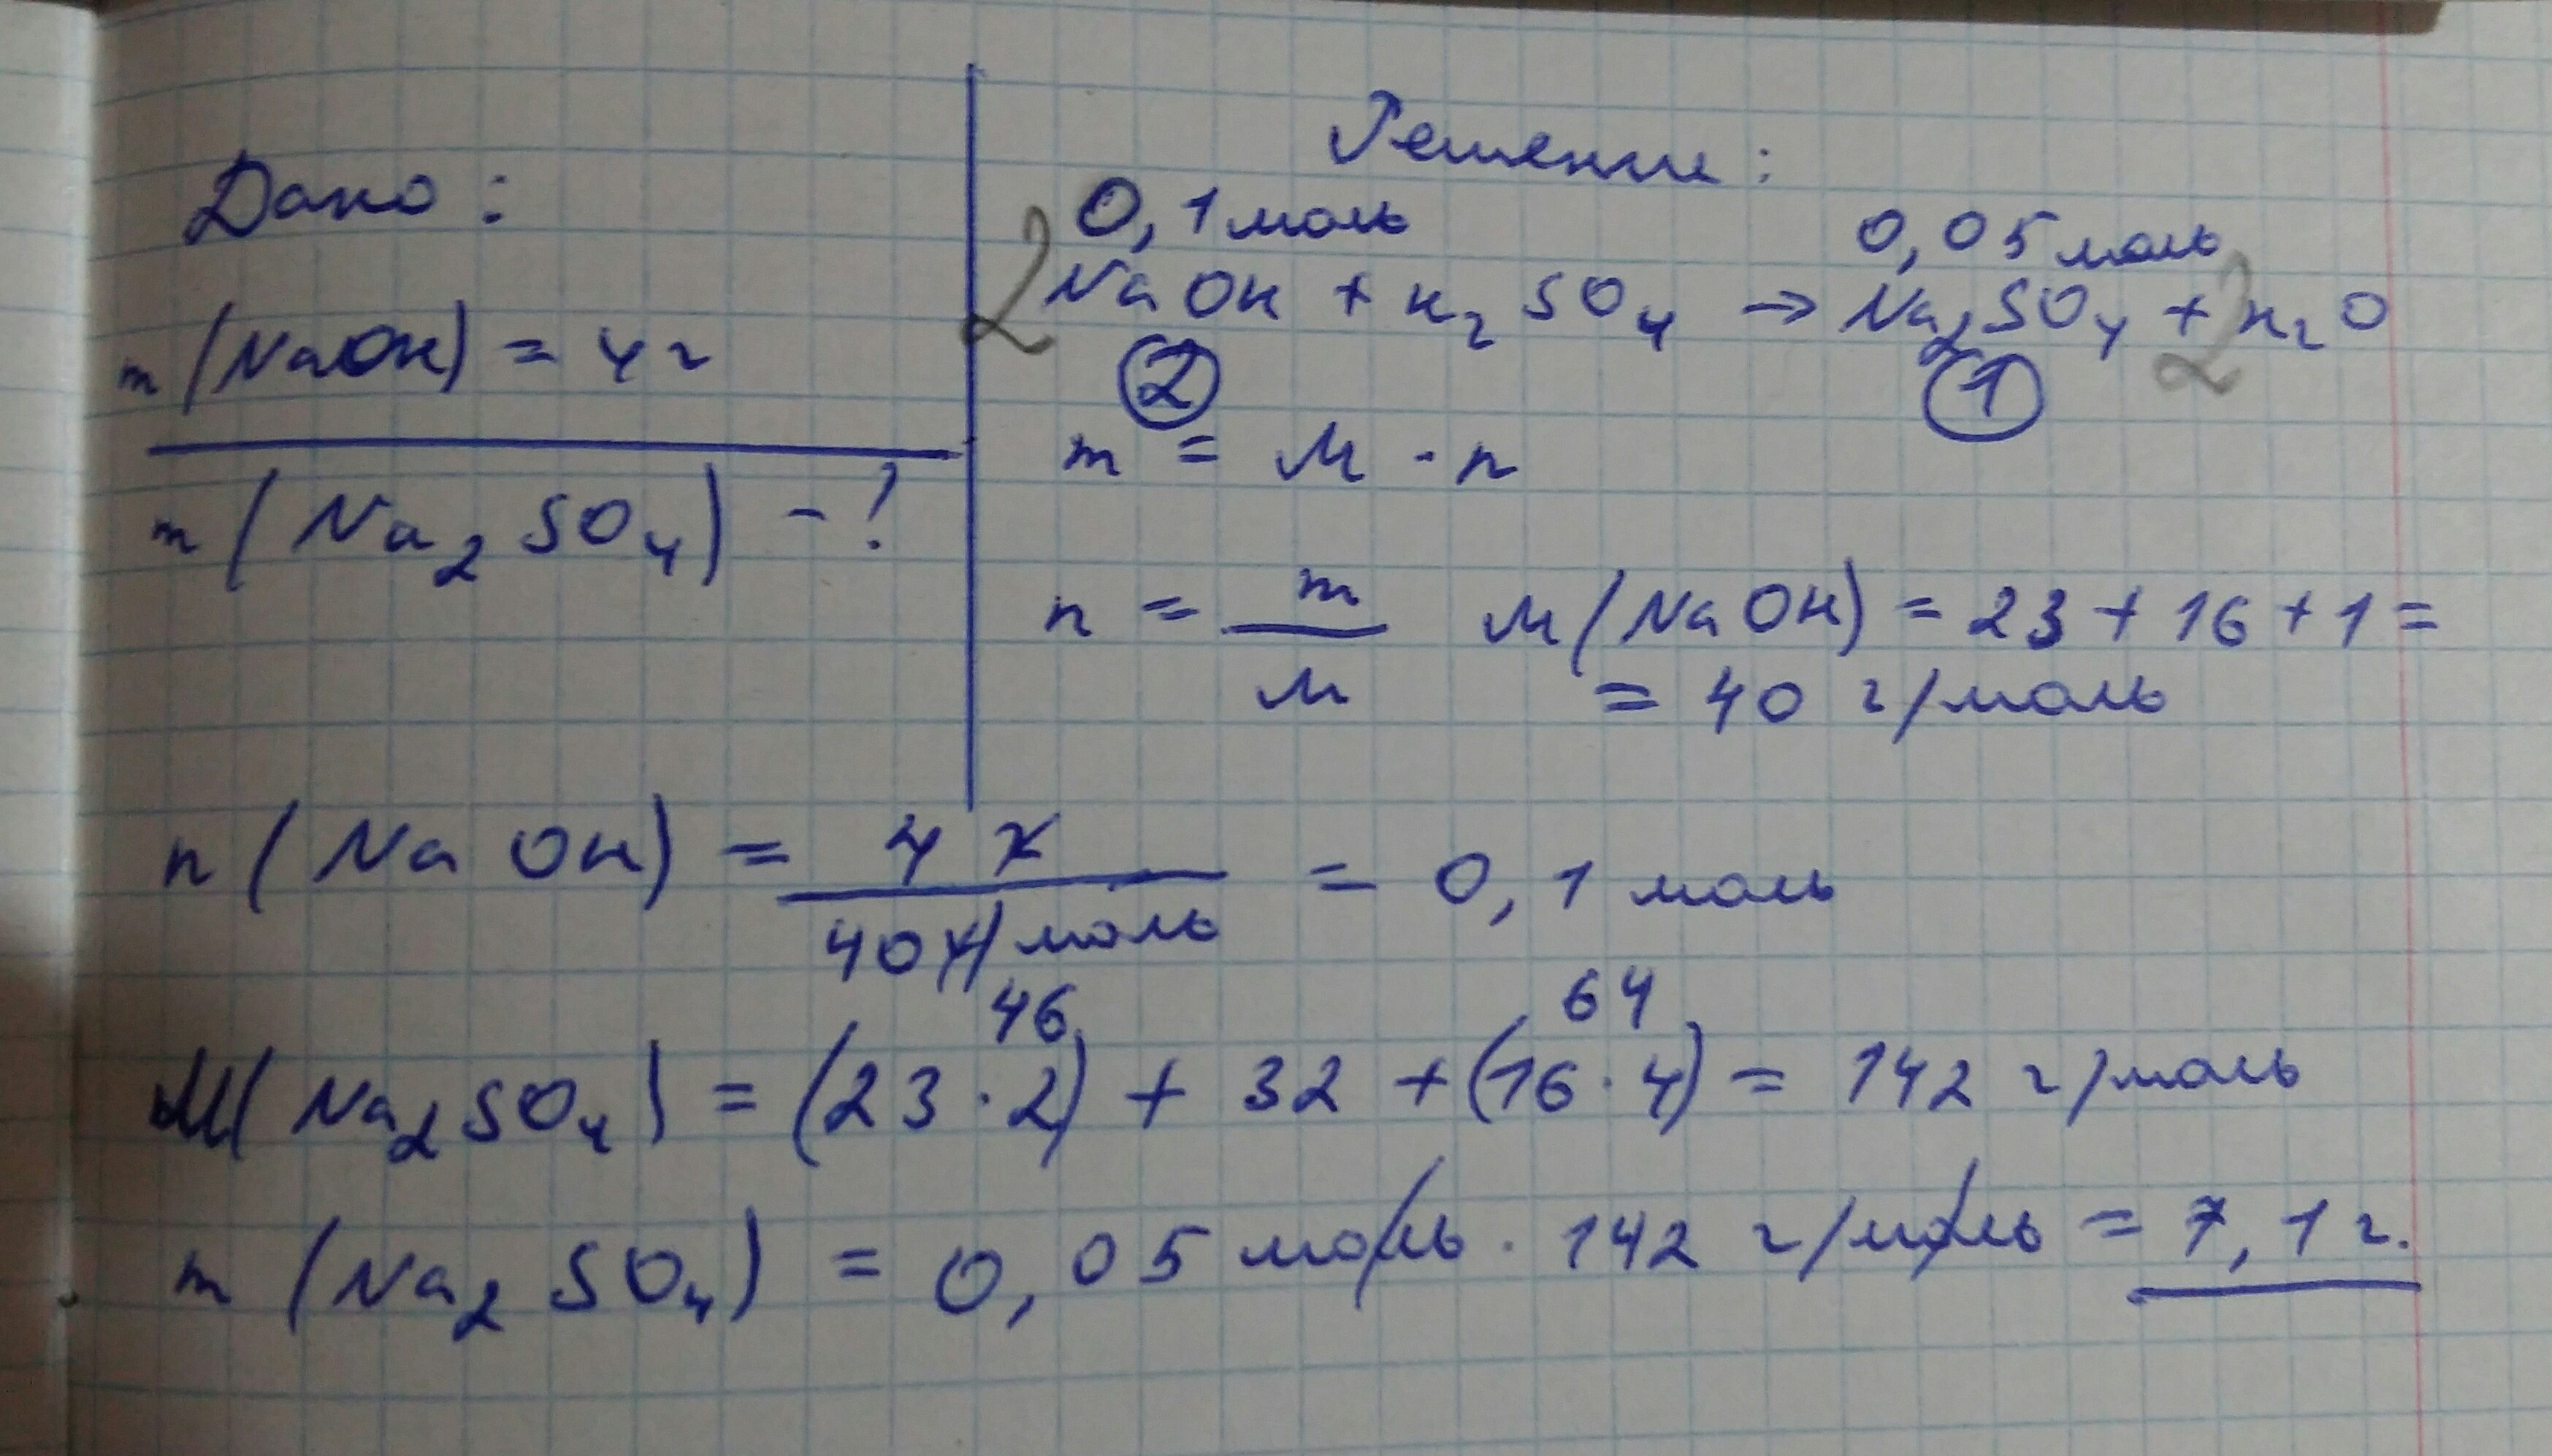 Дано:
m(NaOH) = 4г
m(Na₂SO₄) - ?
Решение:
0,1моль 0,05моль
2NaOH + H₂SO₄ → Na₂SO₄ + 2H₂O
2 1
m = M · n
n = m/M M(NaOH) = 23 + 16 + 1 =
= 40 г/моль
n(NaOH) = 4 г / 40 г/моль = 0,1 моль
46 64
M(Na₂SO₄) = (23·2) + 32 + (16·4) = 142 г/моль
m(Na₂SO₄) = 0,05 моль · 142 г/моль = 7,1 г.